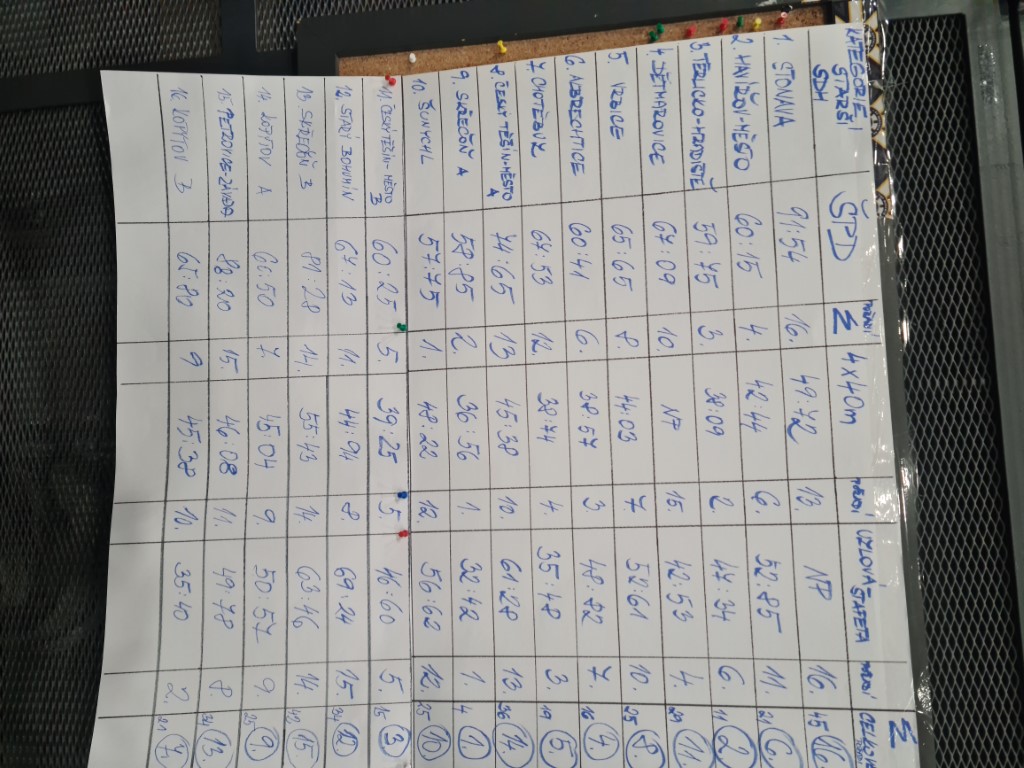 KATEGORIE: STARŠÍ
SDH ŠPD POŘADÍ Σ 4x40m POŘADÍ UZLOVÁ ŠTAFETA POŘADÍ Σ CELKOVÉ
1. STONAVA 91:54 16. 49:72 13. NP 16. 45 16.
2. HAVÍŘOV-MĚSTO 60:15 4. 42:44 6. 52:85 11. 21 6.
3. TĚRLICKO-HRADIŠTĚ 59:45 3. 38:09 2 47:34 6. 11 2
4. DĚTMAROVICE 67:09 10. NP 15. 42:53 4. 29 11.
5. VRBICE 65:65 8. 44:03 7 52:61 10. 25 8.
6. ALBRECHTICE 60:41 6. 38:57 3 48:82 7. 16 4
7. CHOTĚBUZ 67:53 12. 38:74 4. 35:48 3. 19 5
8. ČESKÝ TĚŠÍN-MĚSTO A 74:65 13 45:38 10. 61:28 13. 36 14
9. SKŘEČOŇ A 58:85 2. 36:56 1. 32:42 1. 4 1.
10. ŠUNYCHL 57:75 1. 48:22 12. 56:62 12. 25 10
11. ČESKÝ TĚŠÍN-MĚSTO B 60:25 5. 39:25 5. 46:60 5. 15 3
12. STARÝ BOHUMÍN 67:13 11. 44:94 8. 69:24 15
13. SKŘEČOŇ B 81:28 14. 55:43 14. 63:46 14. 42 15.
14. KOPYTOV A 66:50 7. 45:04 9. 50:57 9. 25 9.
15. PETROVICE-ZÁVADA 88:80 15. 46:08 11. 49:78 8 34 13.
16. KOPYTOV B 65:80 9 45:38 10. 35:40 2. 21 7.